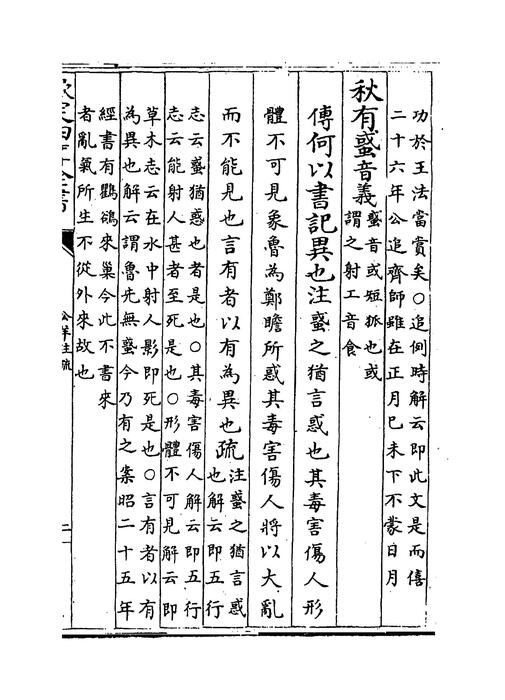 功於王法當賞矣○追例時解云即此文是而僖
二十六年公追齊師雖在正月巳未下不蒙日月
秋有蜮音義蜮音或短狐也或
謂之射工音食
傳何以書記異也注蜮之猶言惑也其毒害傷人形
體不可見象魯為鄭瞻所惑其毒害傷人將以大亂
而不能見也言有者以有為異也疏注蜮之猶言惑
也解云即五行
志云蜮猶惑也者是也○其毒害傷人解云即五行
志云能射人甚者至死是也○形體不可見解云即
草木志云在水中射人影即死是也○言有者以有
為異也解云謂魯先無蜮今乃有之案昭二十五年
經書有鸛鵒來巢今此不書來
者亂氣所生不從外來故也
公羊注疏
二